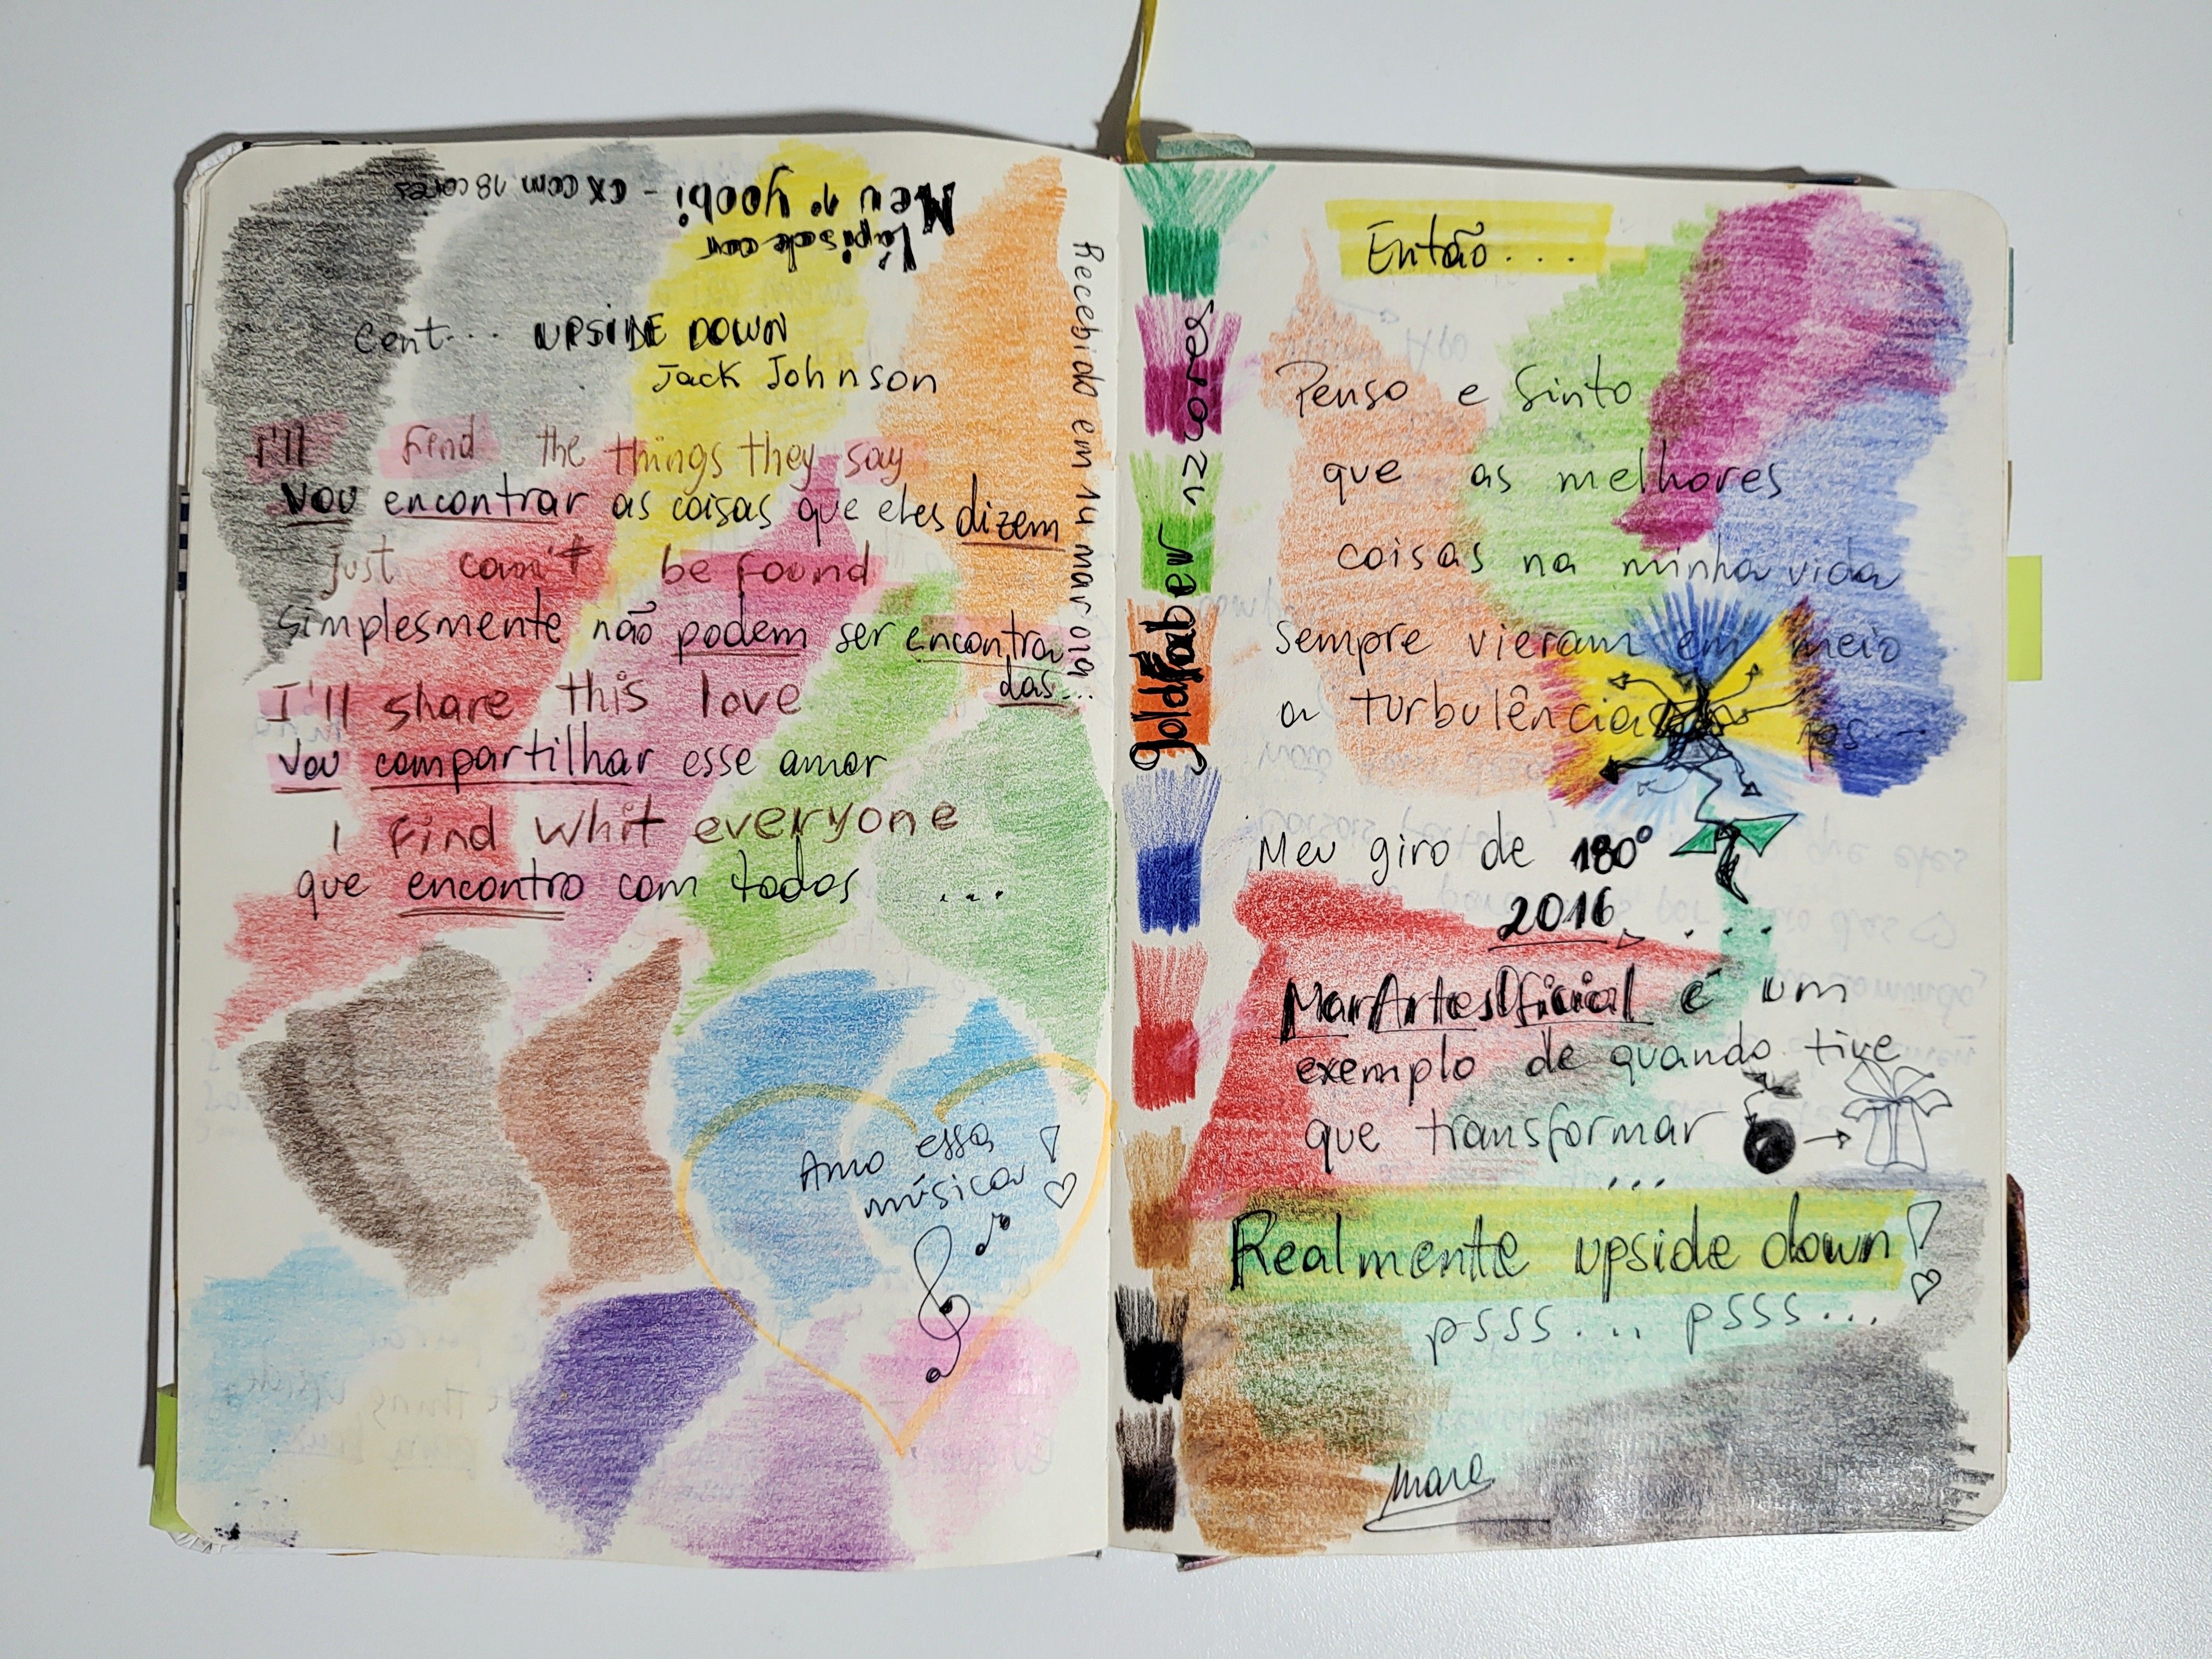 Meu 1º yoobi - cx com 18 cores
lápis de cor
Cont... UPSIDE DOWN
Jack Johnson
I'll find the things they say
Vou encontrar as coisas que eles dizem
just can't be found
simplesmente não podem ser encontra
das...
I'll share this love
Vou compartilhar esse amor
I find whit everyone
que encontro com todos ...
Amo essa
música!
Recebido em 14 mar 019
goldfaber 12 cores
Então...
Penso e Sinto
que as melhores
coisas na minha vida
sempre vieram em meio
a turbulências
Meu giro de 180º
2016....
MarArtesOficial é um
exemplo de quando tive
que transformar
...
Realmente upside down!
psss... psss...
Mara